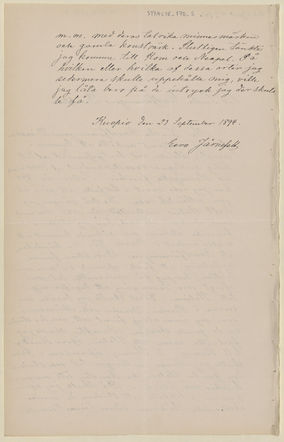 m.m. med deras talrika minnesmärken
och gamla konstverk. Slutligen tänkte
jag komma till Rom och Neapel. På
hvilken eller hvilka af dessa orter jag
sedermera skulle uppehålla mig, ville
jag låta bero på de intryck jag der skul-
le få.
Kuopio den 23 September 1894.
Eero Järnefelt.